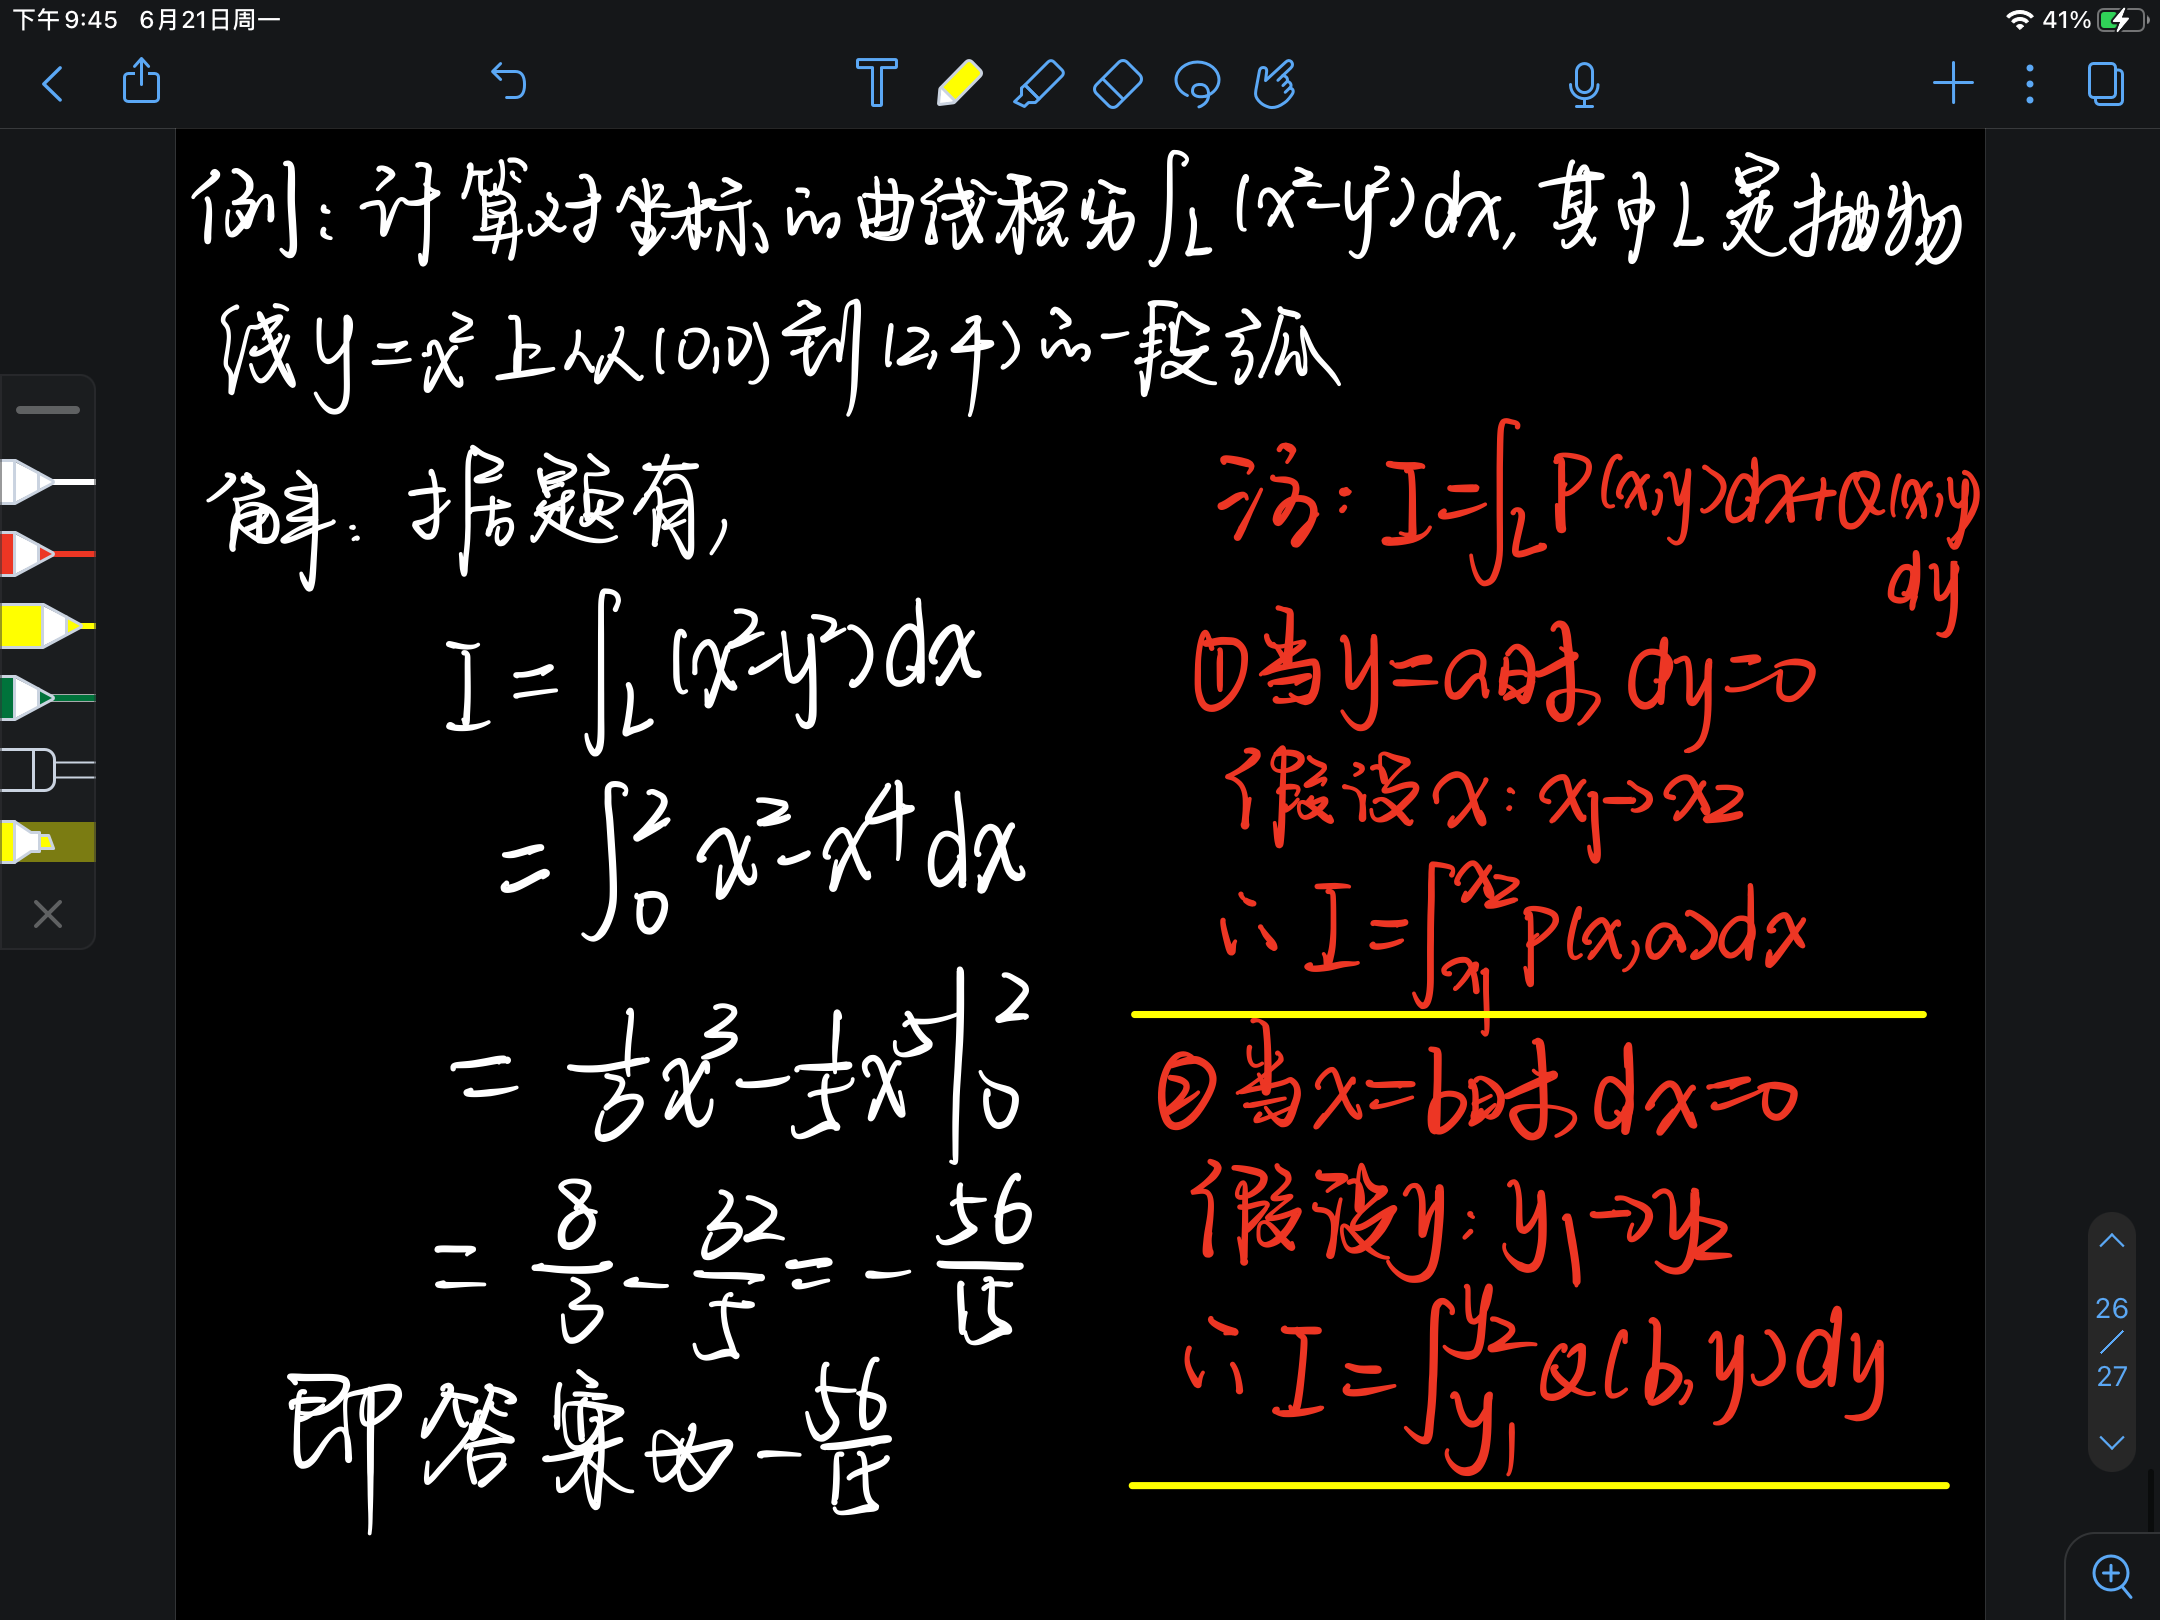 下午9:45 6月21日周一
41%
例：计算对坐标的曲线积分∫_L (x²-y²)dx, 其中L是抛物
线y=x²上从(0,0)到(2,4)的一段弧
解：据题有,
I=∫_L (x²-y²)dx
=∫_0^2 x²-x⁴dx
=1/3 x³-1/5 x⁵|_0^2
=8/3-32/5=-56/15
即答案为-56/15
注：I=∫_L P(x,y)dx+Q(x,y)
dy
①当y=a时, dy=0
假设x：x₁→x₂
∴I=∫_{x₁}^{x₂} P(x,a)dx
②当x=b时, dx=0
假设y：y₁→y₂
∴I=∫_{y₁}^{y₂} Q(b,y)dy
26
/
27